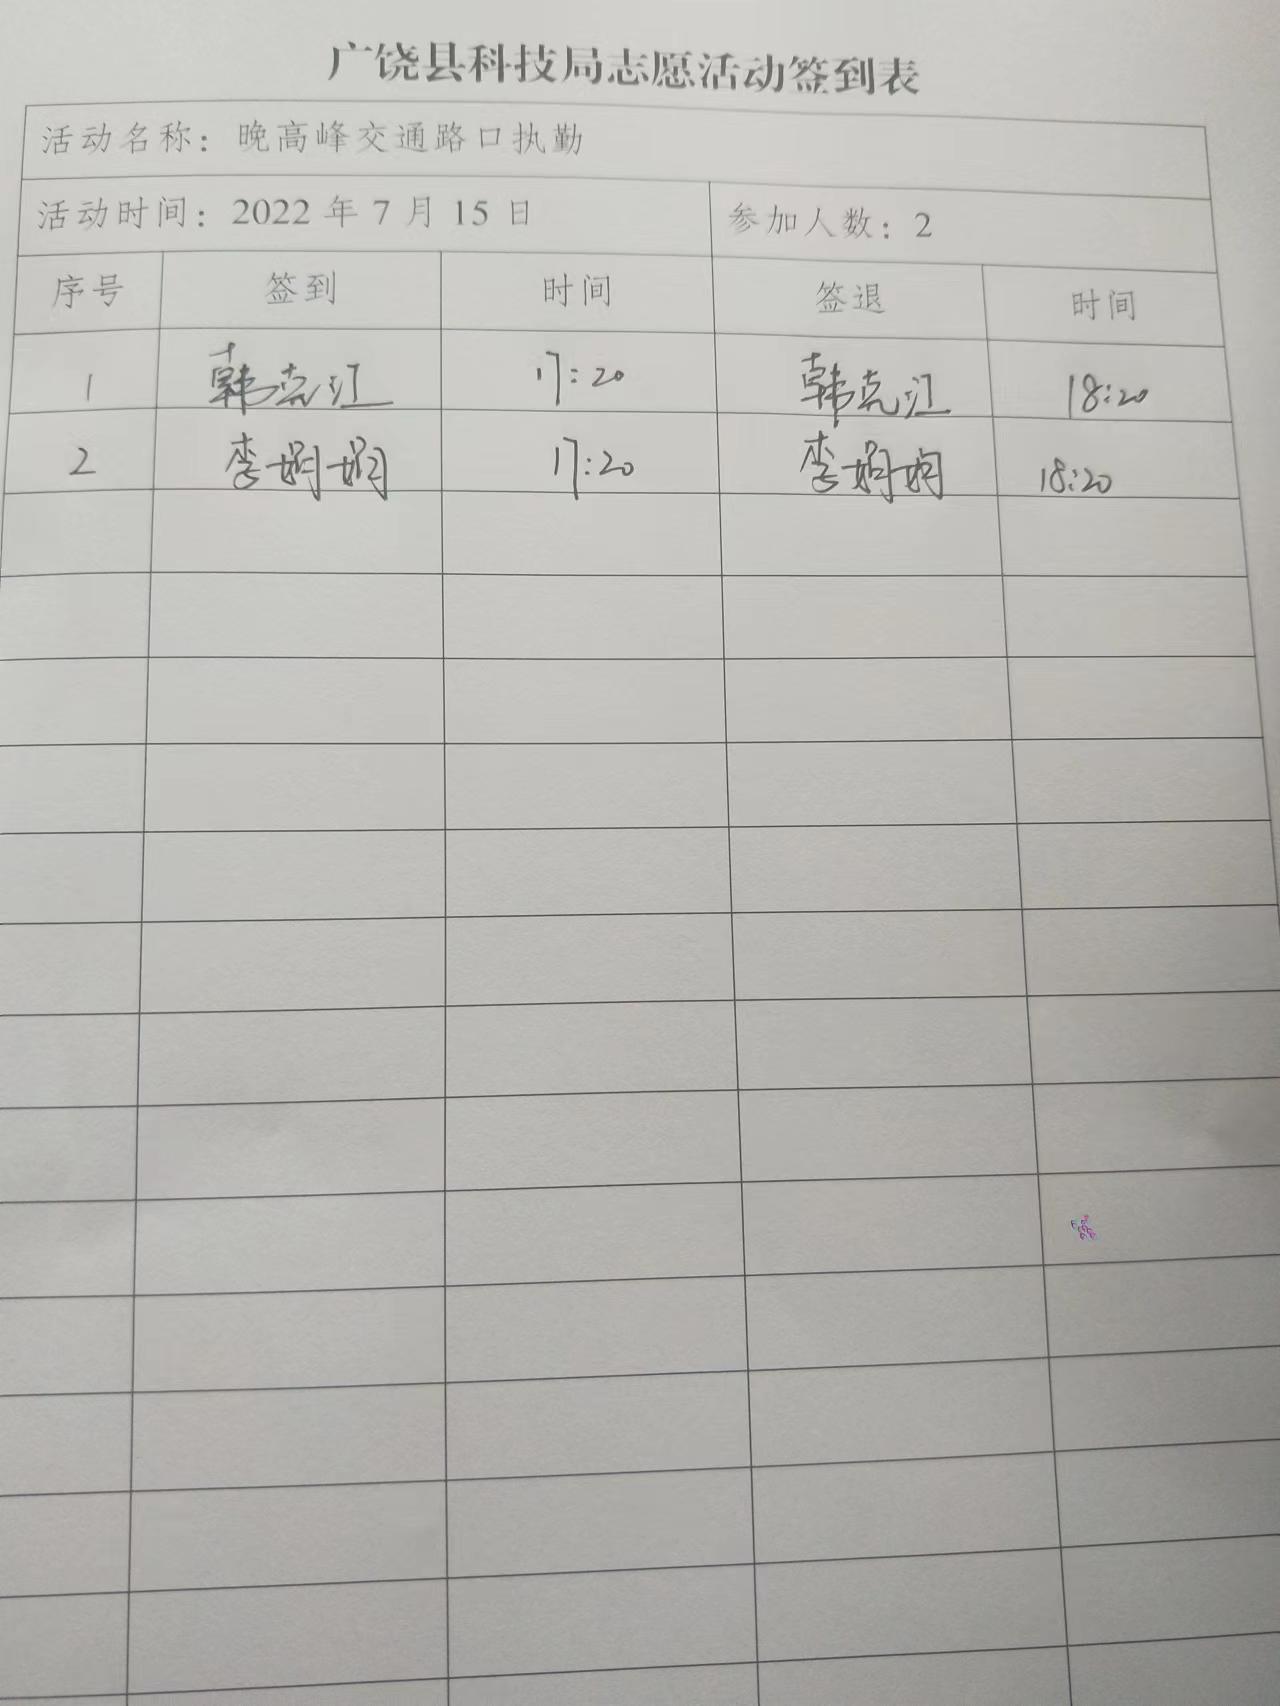 广饶县科技局志愿活动签到表
活动名称：晚高峰交通路口执勤
活动时间：2022 年 7 月 15 日 参加人数：2
序号 签到 时间 签退 时间
1 韩克江 17:20 韩克江 18:20
2 李娟娟 17:20 李娟娟 18:20